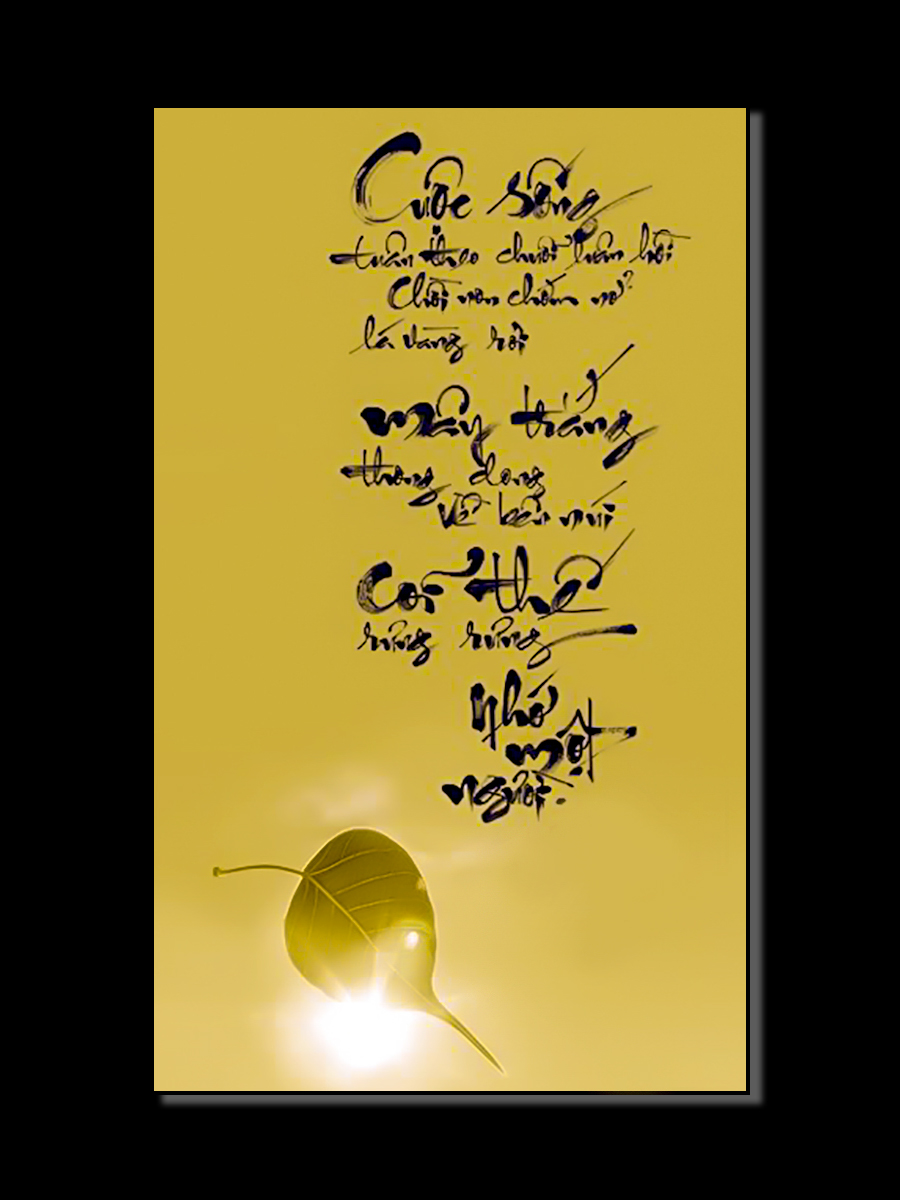 Cuộc sống
tuần theo chuỗi luân hồi
Chồi non chớm nở
lá vàng rơi
mây trắng
thong dong
Về bến núi
Cõi thế
rưng rưng
Nhớ
một
người.